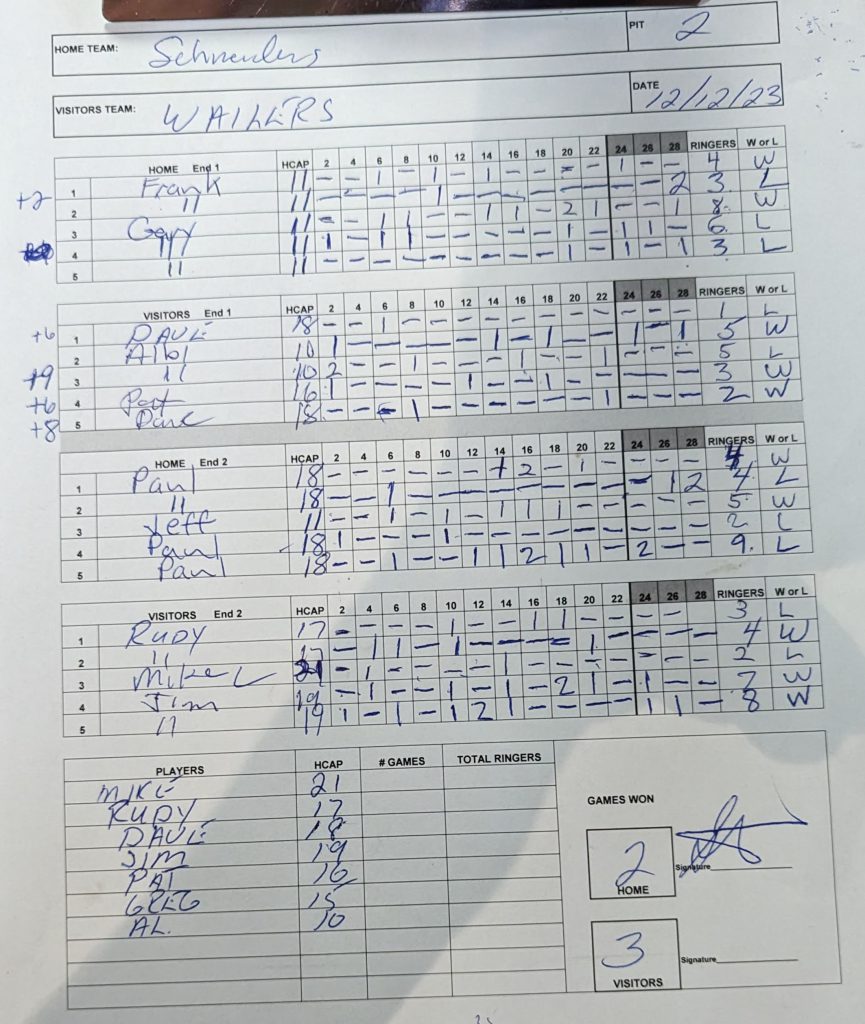 HOME TEAM: Schneiders PIT 2
VISITORS TEAM: WAILERS DATE 12/12/23
HOME End 1 HCAP 2 4 6 8 10 12 14 16 18 20 22 24 26 28 RINGERS W or L
1 Frank 11 – – 1 – 1 – 1 – – – – 1 – – 4 W
+2 2 11 11 – – – – 1 – – – – – – – – 2 3 L
3 Gary 11 – – 1 1 – – 1 1 – 2 1 – – 1 8 W
4 11 1 – 1 1 – – – – – 1 – 1 1 – 6 L
5 11 11 – – – – – – – – – 1 – 1 – 1 3 L
VISITORS End 1 HCAP 2 4 6 8 10 12 14 16 18 20 22 24 26 28 RINGERS W or L
+6 1 DAVE 18 – – 1 – – – – – – – – – – – 1 L
2 Albl 10 1 – – – – – 1 – 1 – – 1 – 1 5 W
+9 3 11 10 2 – – 1 – – – 1 – – 1 – – – 5 L
+6 4 Pat 16 1 – – – – 1 – – 1 – – – – – 3 W
+8 5 18 – – – 1 – – – – – – 1 – – – 2 W
HOME End 2 HCAP 2 4 6 8 10 12 14 16 18 20 22 24 26 28 RINGERS W or L
1 Paul 18 – – – – – – 1 2 – 1 – – – 4 W
2 11 18 – – 1 – – – – – – – – – 1 2 4 L
3 Jeff 11 – – 1 – 1 – 1 1 1 – – – – – 5 W
4 Paul 18 1 – – – 1 – – – – – – – – – 2 L
5 Paul 18 – – 1 – – 1 1 2 1 1 – 2 – – 9 L
VISITORS End 2 HCAP 2 4 6 8 10 12 14 16 18 20 22 24 26 28 RINGERS W or L
1 RUDY 17 – – – – 1 – – 1 1 – – – – 3 L
2 11 17 – 1 1 – 1 – – – – 1 – – – – 4 W
3 Mike L 21 – 1 – – – – 1 – – – – – – – 2 L
4 Jim 19 – 1 – – 1 – 1 – 2 1 – 1 – – 7 W
5 11 19 1 – 1 – 1 2 1 – – – – 1 1 – 8 W
PLAYERS HCAP # GAMES TOTAL RINGERS
MIKE 21
RUDY 17
DAVE 18
JIM 19
PAT 16
GREG 15
AL. 10
GAMES WON
2 HOME Signature
3 VISITORS Signature